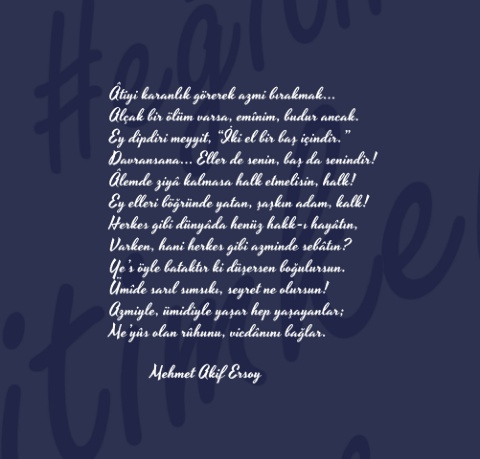 Âtiyi karanlık görerek azmi bırakmak...
Alçak bir ölüm varsa, eminim, budur ancak.
Ey dipdiri meyyit, "İki el bir baş içindir."
Davransana... Eller de senin, baş da senindir!
Âlemde ziyâ kalmasa halk etmelisin, halk!
Ey elleri böğründe yatan, şaşkın adam, kalk!
Herkes gibi dünyâda henüz hakk-ı hayâtın,
Varken, hani herkes gibi azminde sebâtın?
Ye's öyle bataktır ki düşersen boğulursun.
Ümîde sarıl sımsıkı, seyret ne olursun!
Azmiyle, ümidiyle yaşar hep yaşayanlar;
Me'yûs olan rûhunu, vicdânını bağlar.
Mehmet Akif Ersoy